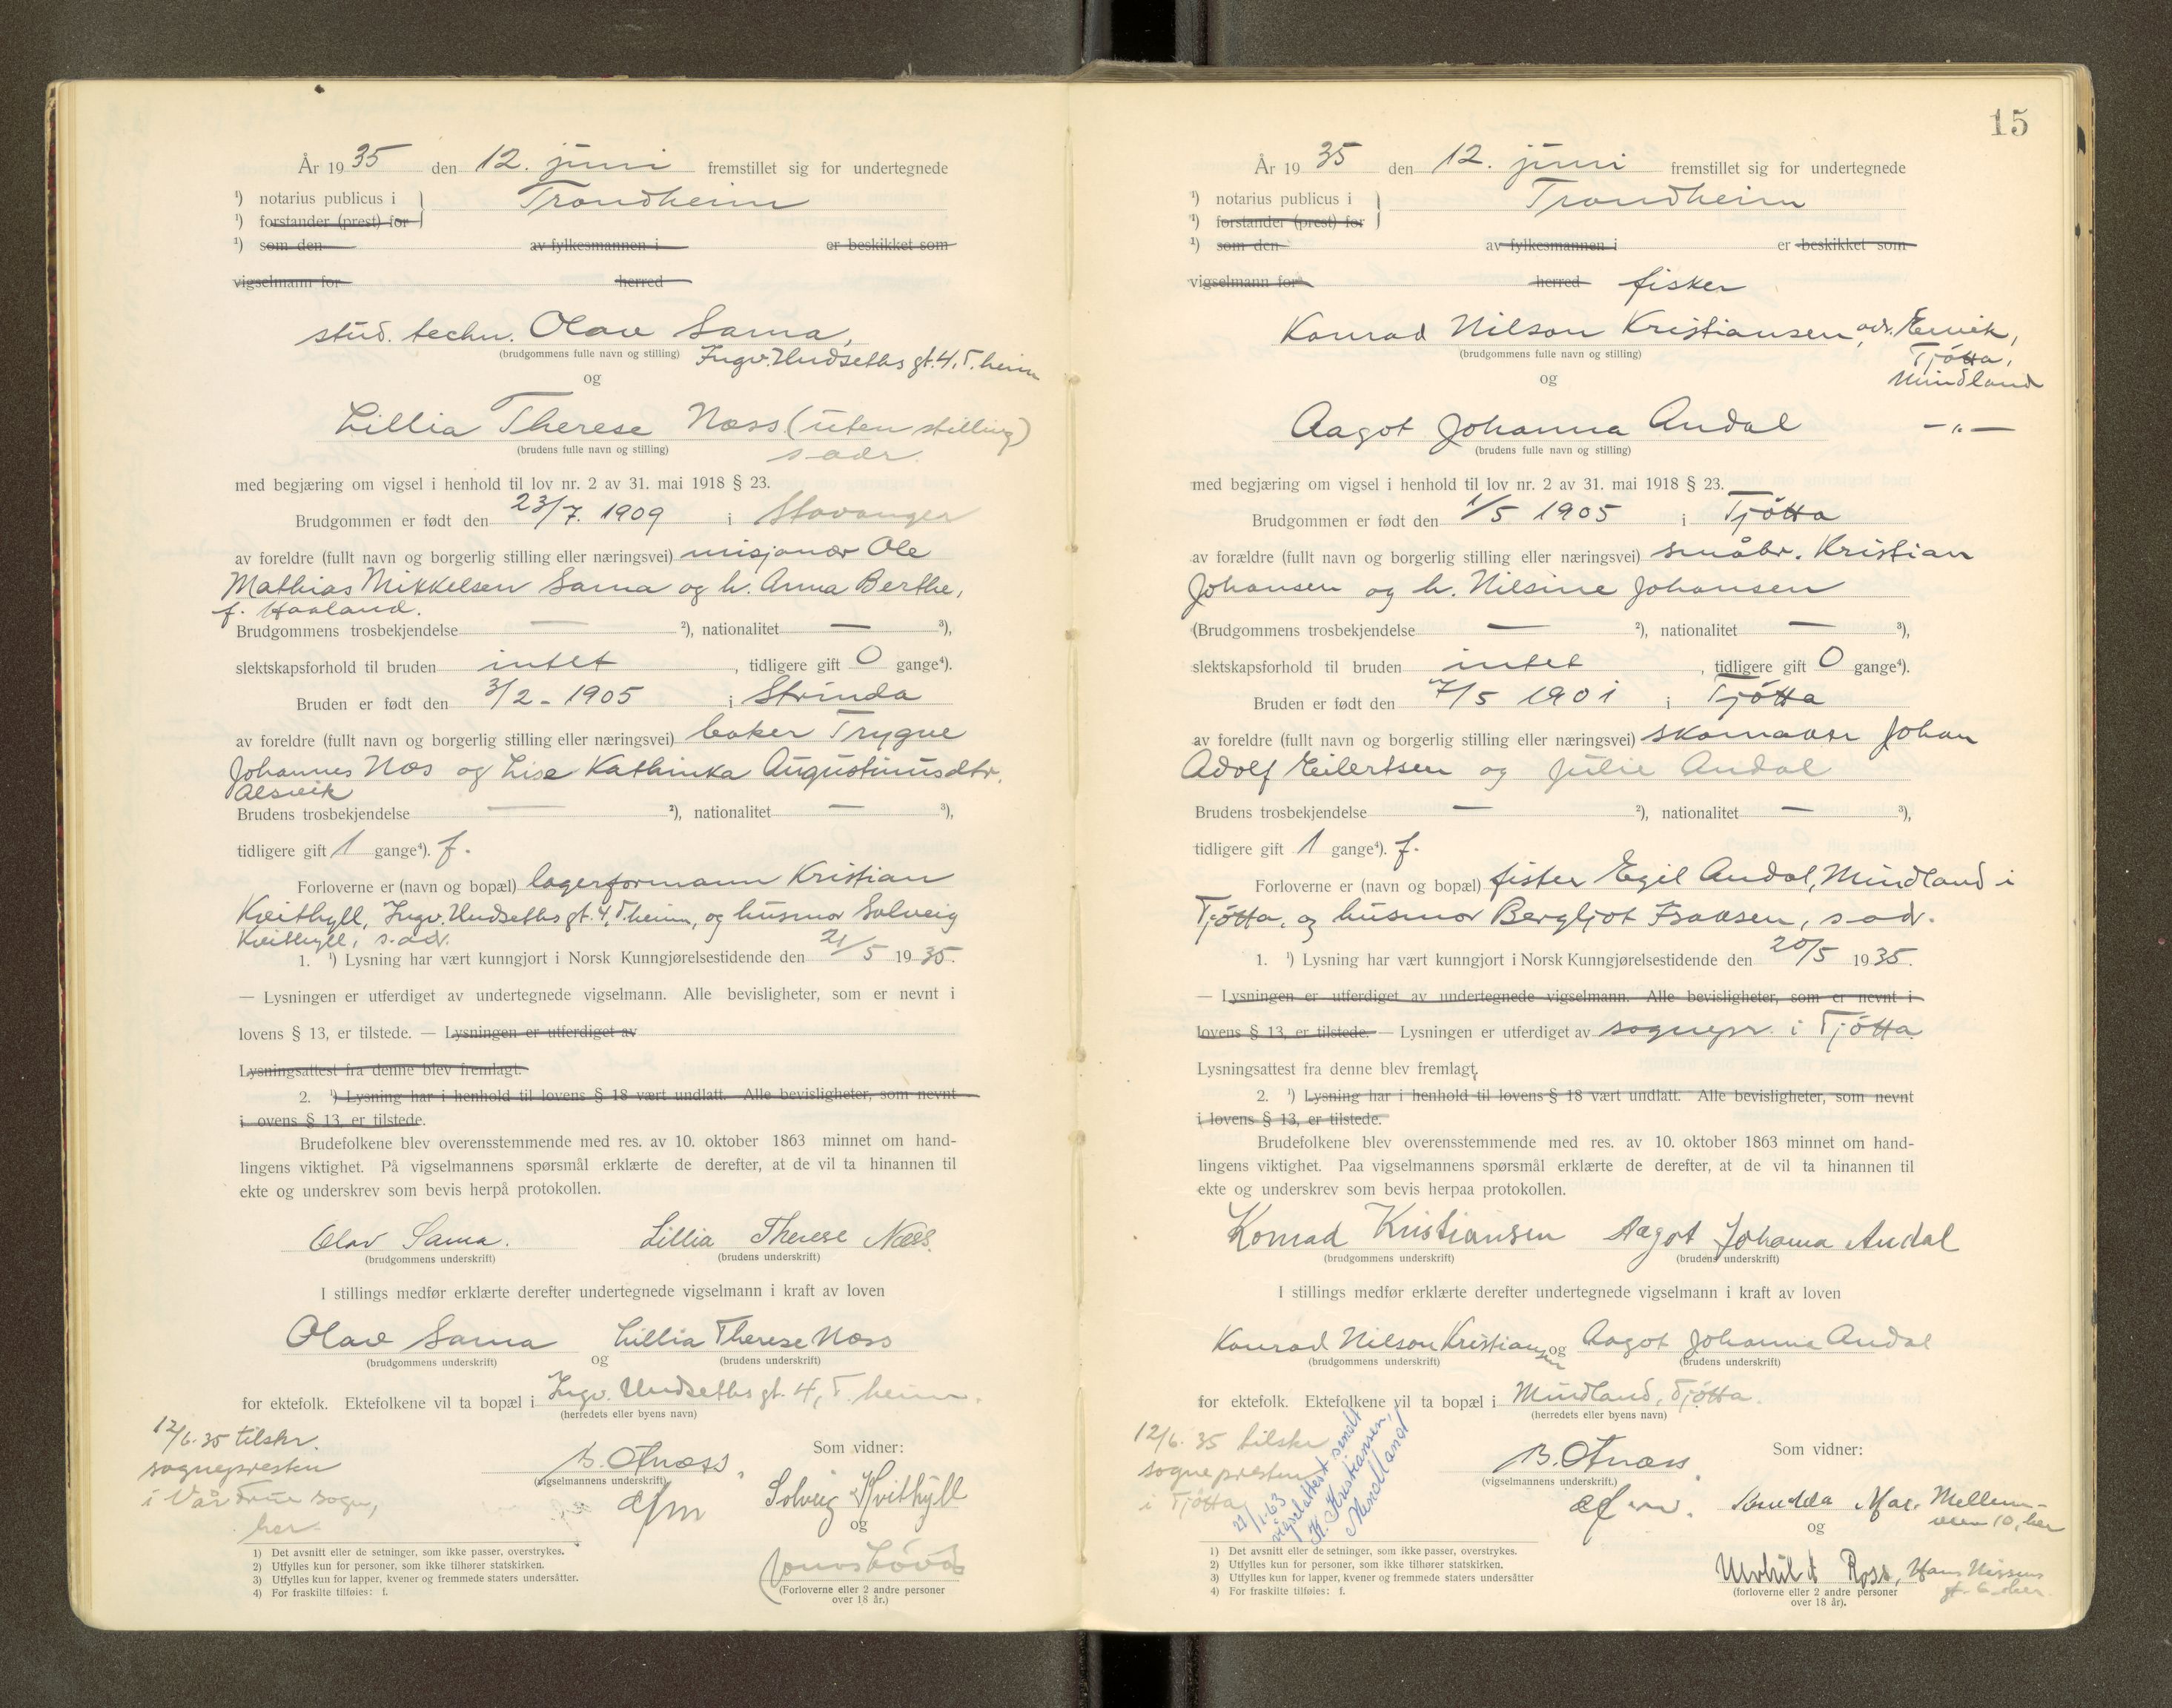 År 1935 den 12. juni fremstillet sig for undertegnede
¹) notarius publicus i Trondheim
¹) forstander (prest) for
¹) som den av fylkesmannen i er beskikket som
vigselmann for herred
stud. techn. Olav Sama,
(brudgommens fulle navn og stilling) Ingv. Undseths gt. 4, T.heim
og
Lillia Therese Næss (uten stilling)
(brudens fulle navn og stilling) s adr.
med begjæring om vigsel i henhold til lov nr. 2 av 31. mai 1918 § 23.
Brudgommen er født den 23/7. 1909 i Stavanger
av foreldre (fullt navn og borgerlig stilling eller næringsvei) misjonær Ole
Mathias Mikkelsen Sama og h. Anna Berthe,
f. Haaland.
Brudgommens trosbekjendelse — ²), nationalitet — ³),
slektskapsforhold til bruden intet, tidligere gift 0 gange⁴).
Bruden er født den 3/2 - 1905 i Strinda
av foreldre (fullt navn og borgerlig stilling eller næringsvei) baker Trygve
Johannes Næs og Lise Kathinka Augustinusdtr.
Alsvik
Brudens trosbekjendelse — ²), nationalitet — ³),
tidligere gift 1 gange⁴). f.
Forloverne er (navn og bopæl) lagerformann Kristian
Kvithyll, Ingv. Undseths gt. 4, T.heim, og husmor Solveig
Kvithyll, s. adr.
1. ¹) Lysning har vært kunngjort i Norsk Kunngjørelsestidende den 21/5 1935.
— Lysningen er utferdiget av undertegnede vigselmann. Alle bevisligheter, som er nevnt i
lovens § 13, er tilstede. — Lysningen er utferdiget av
Lysningsattest fra denne blev fremlagt.
2. ¹) Lysning har i henhold til lovens § 18 vært undlatt. Alle bevisligheter, som nevnt
i ovens § 13, er tilstede.
Brudefolkene blev overensstemmende med res. av 10. oktober 1863 minnet om hand-
lingens viktighet. På vigselmannens spørsmål erklærte de derefter, at de vil ta hinannen til
ekte og underskrev som bevis herpå protokollen.
Olav Sama. Lillia Therese Næss.
(brudgommens underskrift) (brudens underskrift)
I stillings medfør erklærte derefter undertegnede vigselmann i kraft av loven
Olav Sama og Lillia Therese Næss
(brudgommens underskrift) (brudens underskrift)
for ektefolk. Ektefolkene vil ta bopæl i Ingv. Undseths gt. 4, T.heim.
(herredets eller byens navn)
12/6. 35 tilskr.
sognepresten
i Vår Frue sogn,
her.
(vigselmannens underskrift)
Som vidner:
Solveig Kvithyll
og
(Forloverne eller 2 andre personer
over 18 år.)
1) Det avsnitt eller de setninger, som ikke passer, overstrykes.
2) Utfylles kun for personer, som ikke tilhører statskirken.
3) Utfylles kun for lapper, kvener og fremmede staters undersåtter.
4) For fraskilte tilføies: f.
15
År 1935 den 12. juni fremstillet sig for undertegnede
¹) notarius publicus i Trondheim
¹) forstander (prest) for
¹) som den av fylkesmannen i er beskikket som
vigselmann for herred fisker
Konrad Nilson Kristiansen, adr. Ervik,
(brudgommens fulle navn og stilling) Tjötta,
og Mindland
Aagot Johanna Andal —"—
(brudens fulle navn og stilling)
med begjæring om vigsel i henhold til lov nr. 2 av 31. mai 1918 § 23.
Brudgommen er født den 1/5 1905 i Tjötta
av forældre (fullt navn og borgerlig stilling eller næringsvei) småbr. Kristian
Johansen og h. Nilsine Johansen
(Brudgommens trosbekjendelse — ²), nationalitet — ³),
slektskapsforhold til bruden intet, tidligere gift 0 gange⁴).
Bruden er født den 7/5 1901 i Tjötta
av foreldre (fullt navn og borgerlig stilling eller næringsvei) skomaker Johan
Adolf Eilertsen og Julie Andal
Brudens trosbekjendelse — ²), nationalitet — ³),
tidligere gift 1 gange⁴). f.
Forloverne er (navn og bopæl) fisker Egil Andal, Mindland i
Tjötta, og husmor Bergljot Isaksen, s. adr.
1. ¹) Lysning har vært kunngjort i Norsk Kunngjørelsestidende den 20/5 1935.
— Lysningen er utferdiget av undertegnede vigselmann. Alle bevisligheter, som er nevnt i
lovens § 13, er tilstede. — Lysningen er utferdiget av sognepr. i Tjötta
Lysningsattest fra denne blev fremlagt.
2. ¹) Lysning har i henhold til lovens § 18 vært undlatt. Alle bevisligheter, som nevnt
i lovens § 13, er tilstede.
Brudefolkene blev overensstemmende med res. av 10. oktober 1863 minnet om hand-
lingens viktighet. Paa vigselmannens spørsmål erklærte de derefter, at de vil ta hinannen til
ekte og underskrev som bevis herpaa protokollen.
Konrad Kristiansen Aagot Johanna Andal
(brudgommens underskrift) (brudens underskrift)
I stillings medfør erklærte derefter undertegnede vigselmann i kraft av loven
Konrad Nilson Kristiansen og Aagot Johanna Andal
(brudgommens underskrift) (brudens underskrift)
for ektefolk. Ektefolkene vil ta bopæl i Mindland, Tjötta.
(herredets eller byens navn)
12/6. 35 tilskr
sognepresten
i Tjötta
21/1-63
vigselattest sendt
K. Kristiansen,
Mindland
(vigselmannens underskrift.)
Som vidner:
Mellem-
veien 10, her
og
Ross, Hans Nissens
gt. 6 her
(forloverne eller 2 andre personer
over 18 år).
1) Det avsnitt eller de setninger, som ikke passer, overstrykes.
2) Utfylles kun for personer, som ikke tilhører statskirken.
3) Utfylles kun for lapper, kvener og fremmede staters undersåtter
4) For fraskilte tilføies: f.